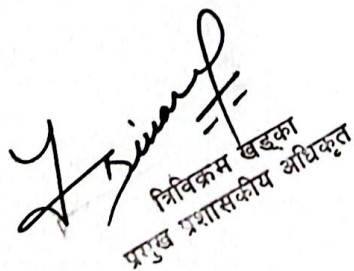 त्रिविक्रम खड्का
प्रमुख प्रशासकीय अधिकृत